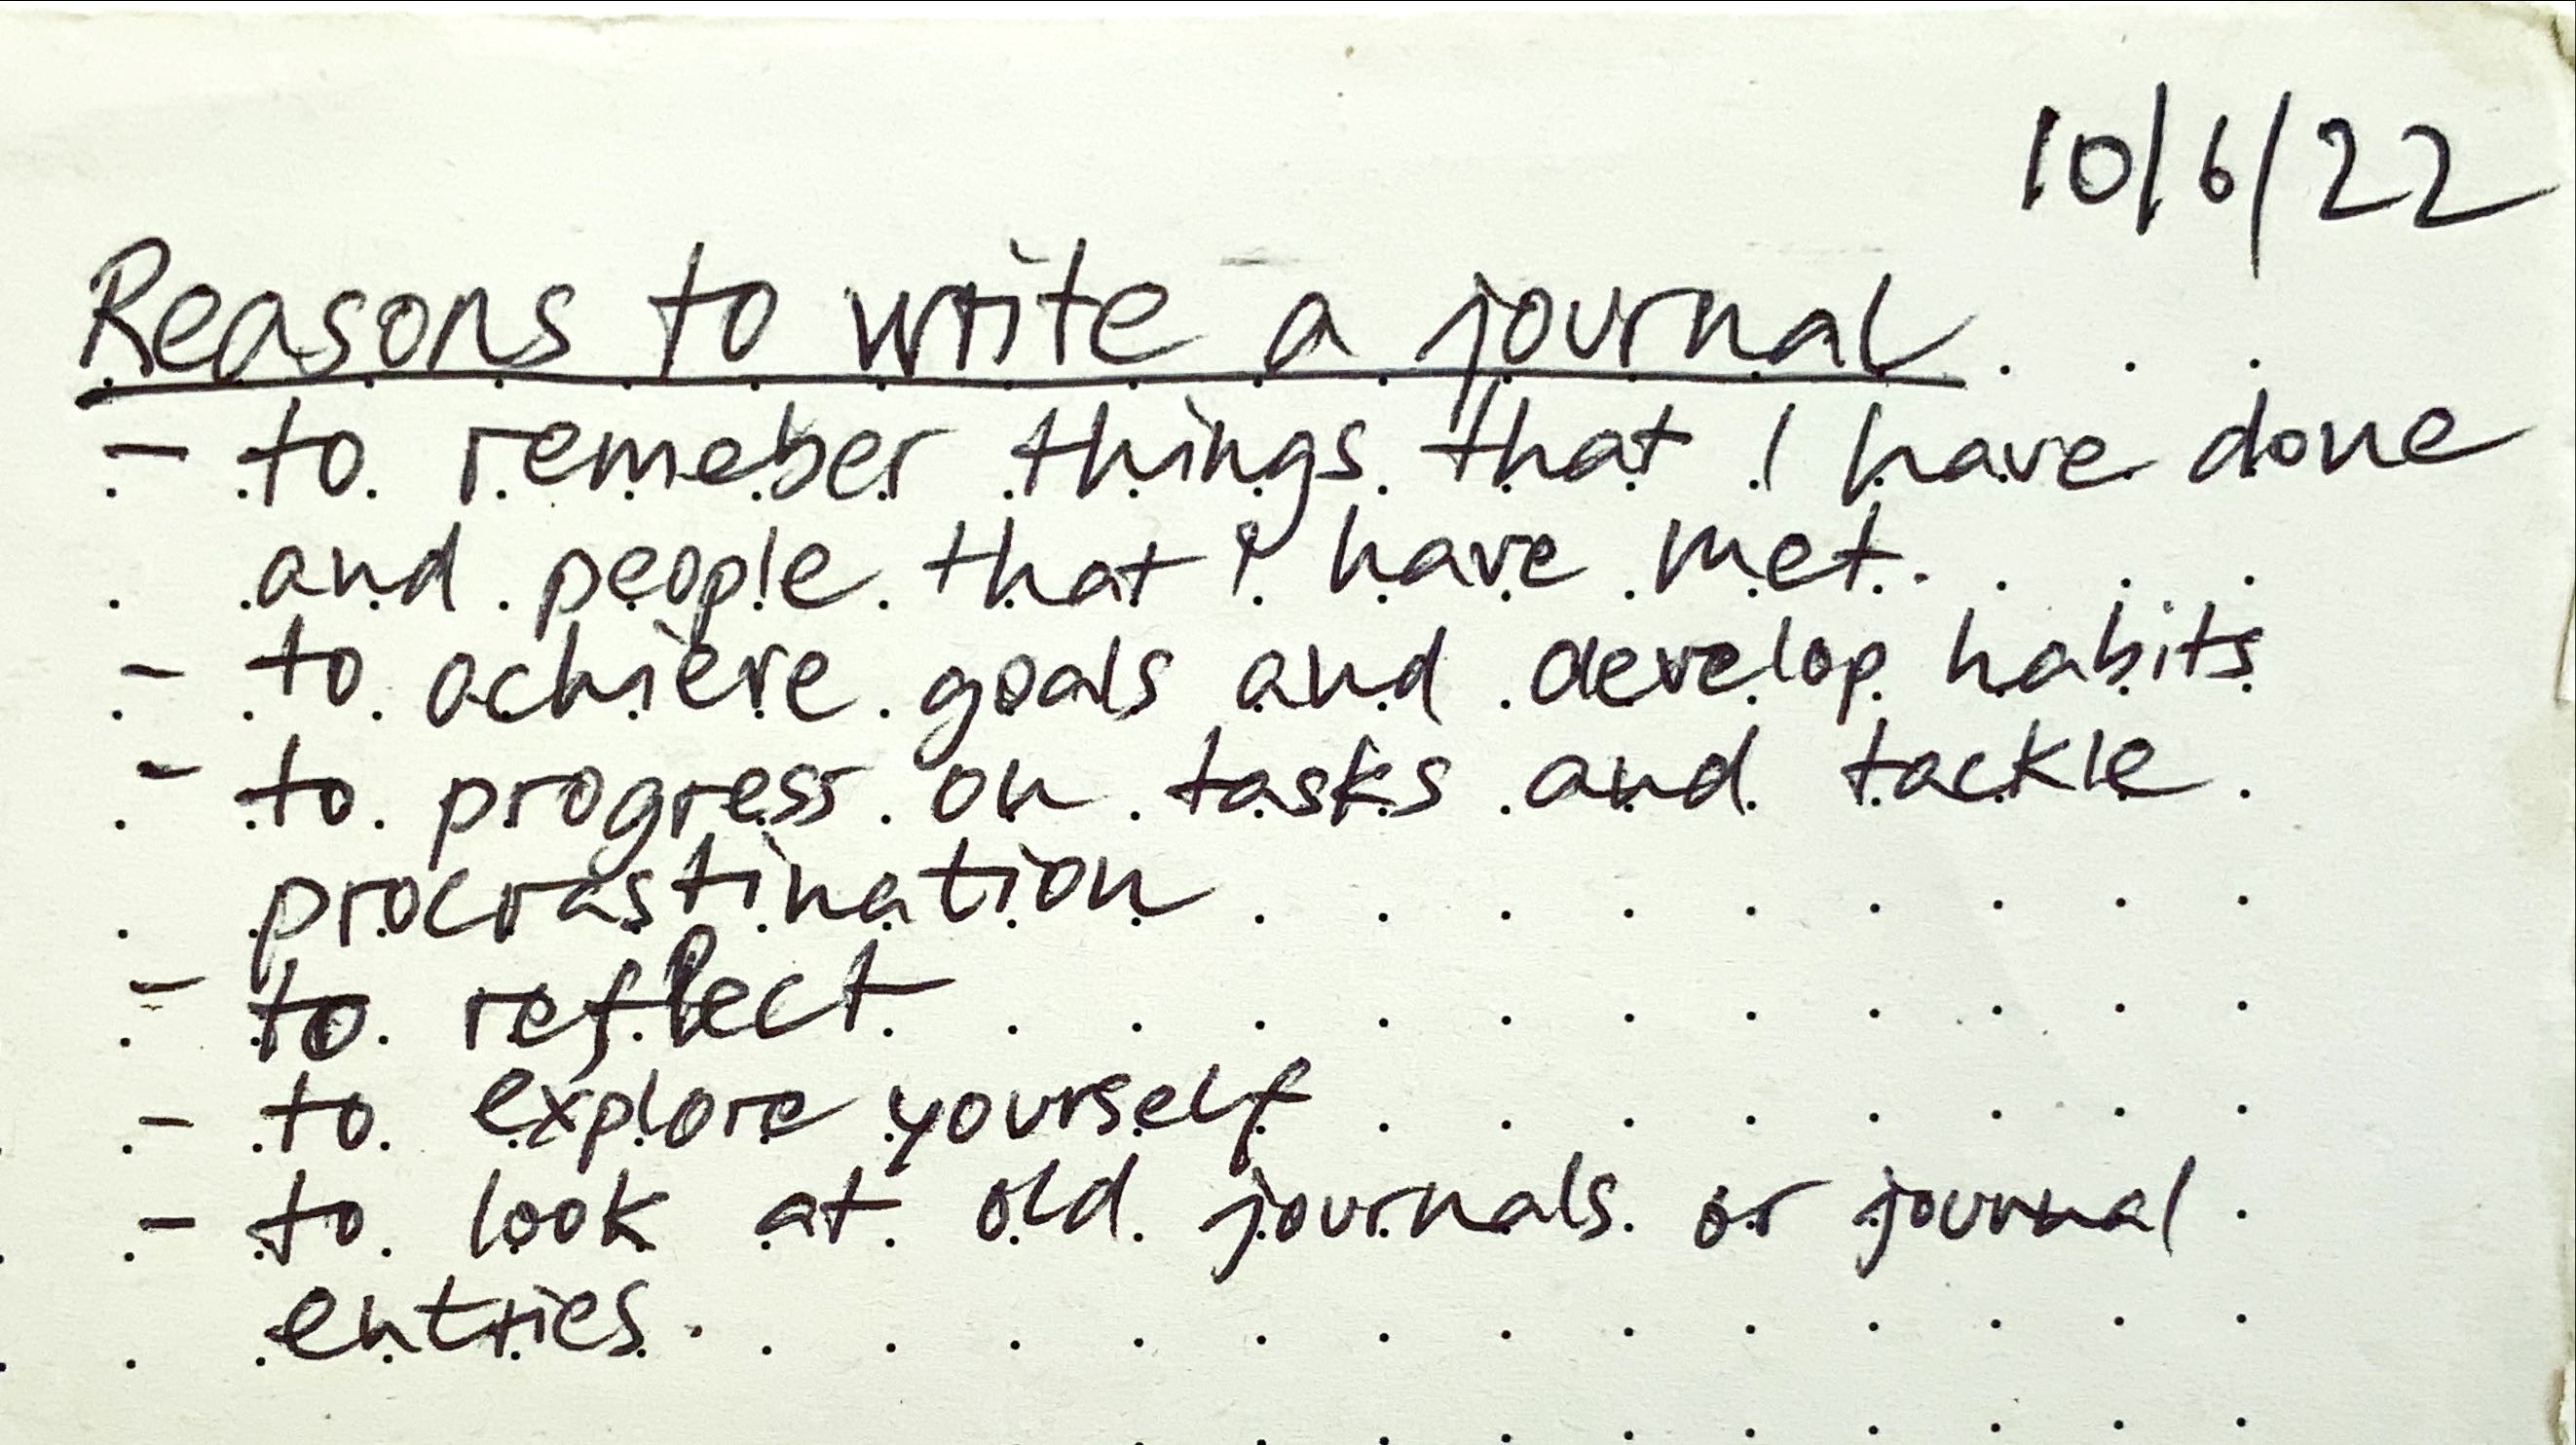 10/6/22
Reasons to write a journal
- to remeber things that I have done
and people that i have met.
- to achieve goals and develop habits
- to progress on tasks and tackle
procrastination
- to reflect
- to explore yourself
- to look at old journals or journal
entries.